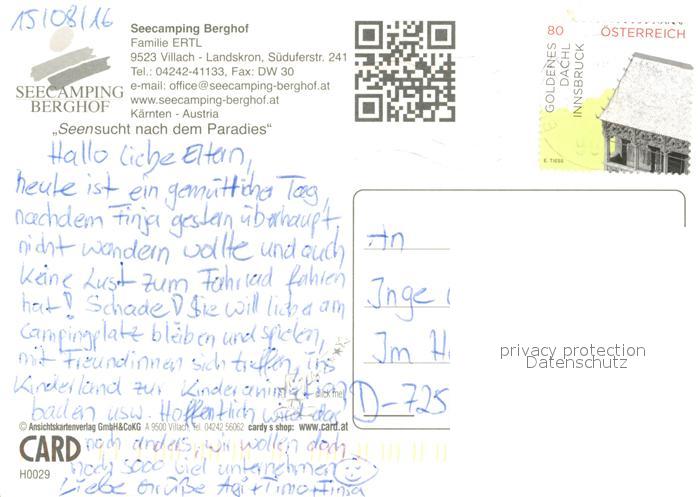 15/08/16
Seecamping Berghof
Familie ERTL
9523 Villach - Landskron, Süduferstr. 241
Tel.: 04242-41133, Fax: DW 30
e-mail: office@seecamping-berghof.at
www.seecamping-berghof.at
Kärnten - Austria
SEECAMPING
BERGHOF
„Seensucht nach dem Paradies“
80 ÖSTERREICH
GOLDENES
DACHL
INNSBRUCK
E. TIESS
Hallo liebe Eltern,
heute ist ein gemütlicher Tag,
nachdem Finja gestern überhaupt
nicht wandern wollte und auch
keine Lust zum Fahrrad fahren
hat! Schade! Sie will lieber am
Campingplatz bleiben und spielen,
mit Freundinnen sich treffen, ins
Kinderland zur Kinderanimation,
baden usw. Hoffentlich wird das
noch anders, wir wollen doch
noch sooo viel unternehmen
Liebe Grüße Agi+Timo+Finja
An
Inge
Im H
D-725
privacy protection
Datenschutz
click me!
© Ansichtskartenverlag GmbH&CoKG A 9500 Villach, Tel. 04242 56062 cardy s shop: www.card.at
CARD
H0029